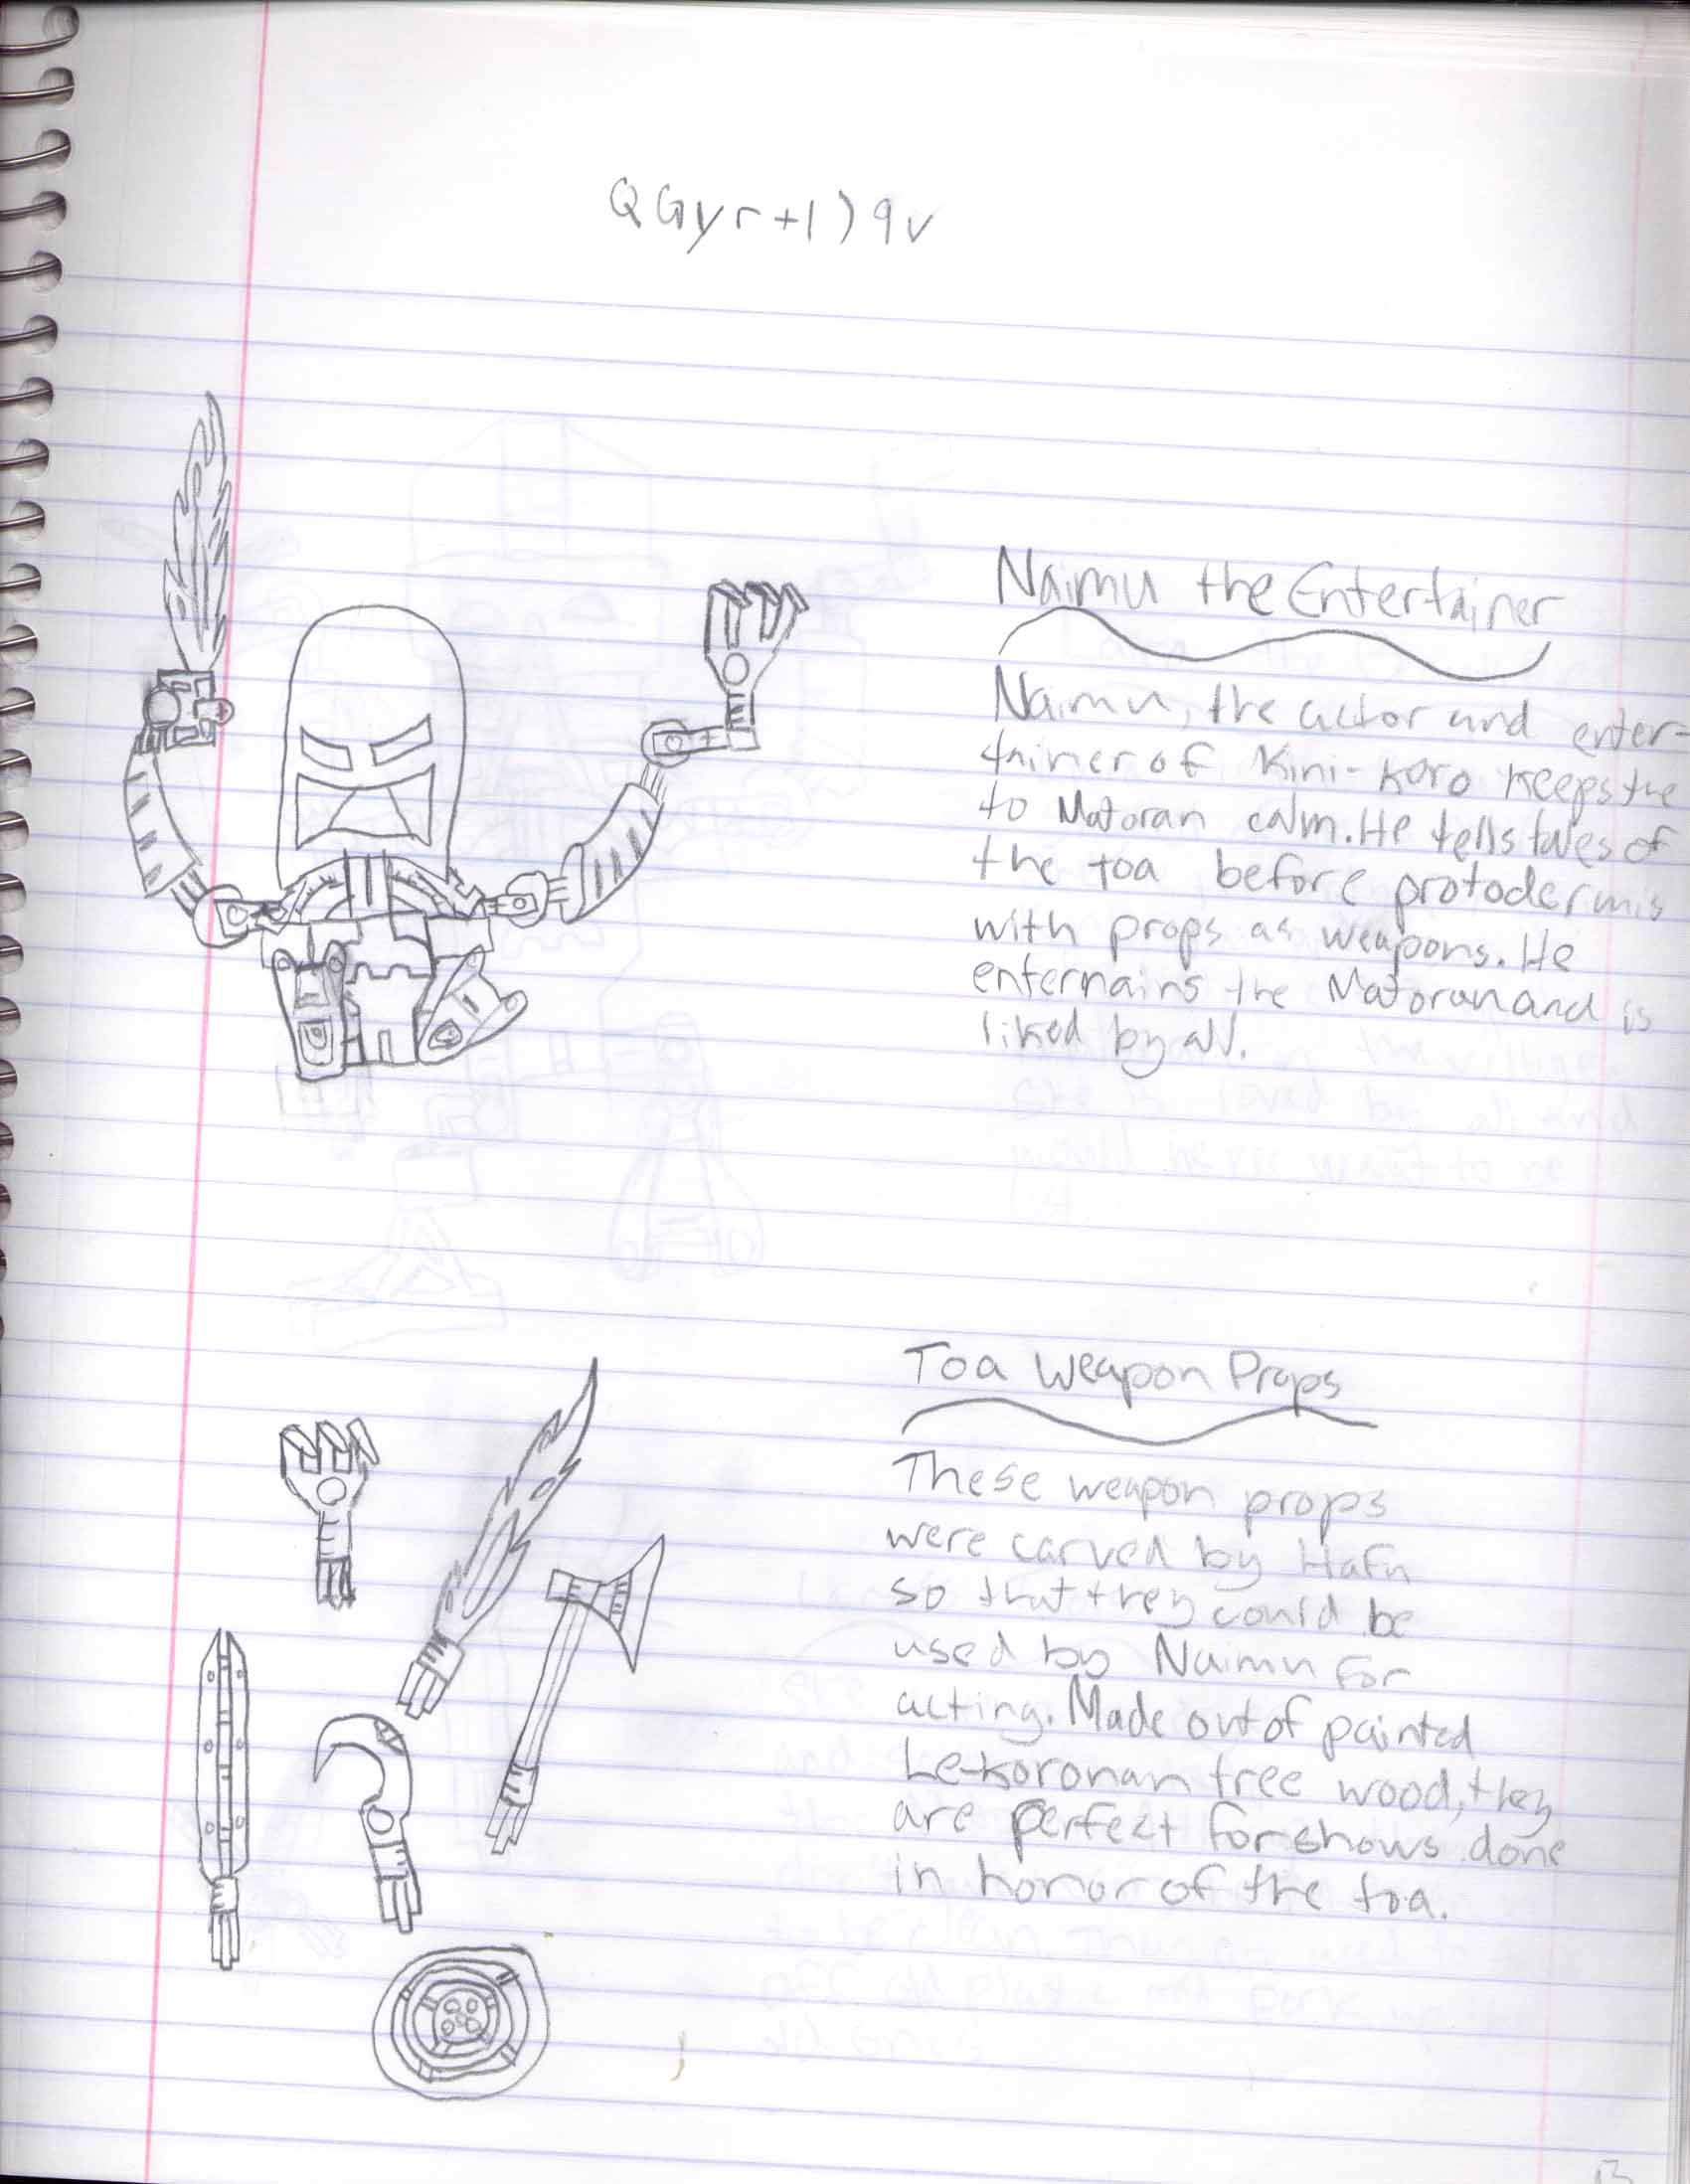 QGyr+1)9v
Naimu the Entertainer
Naimu, the actor and enter-
tainer of Kini-Koro keeps the
to Matoran calm. He tells tales of
the toa before protodermis
with props as weapons. He
enternains the Matoran and is
liked by all.
Toa Weapon Props
These weapon props
were carved by Hafu
so that they could be
used by Naimu for
acting. Made out of painted
Le-koronan tree wood, they
are perfect for shows done
in honor of the toa.